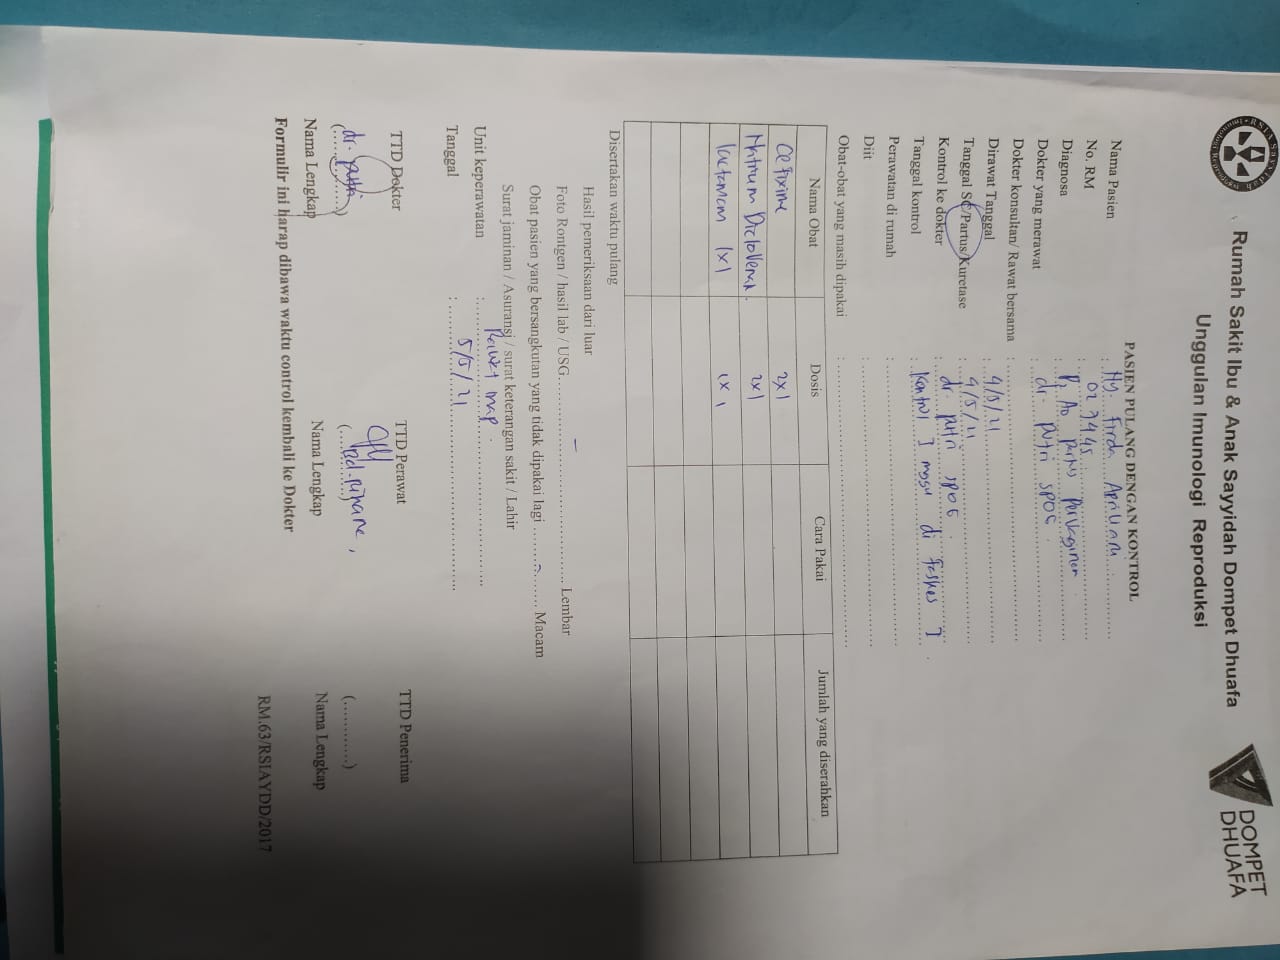 Rumah Sakit Ibu & Anak Sayyidah Dompet Dhuafa
Unggulan Imunologi Reproduksi
DOMPET DHUAFA
PASIEN PULANG DENGAN KONTROL
Nama Pasien : Ny. Firda Apriliani
No. RM : 027445
Diagnosa : P1 A0 partus pervaginam
Dokter yang merawat : dr. putri SPOG
Dokter konsultan/ Rawat bersama :
Dirawat Tanggal : 4/5/21
Tanggal SC/Partus/Kuretase : 4/5/21
Kontrol ke dokter : dr. putri SPOG
Tanggal kontrol : Kontrol 1 mggu di faskes 1
Perawatan di rumah :
Diit :
Obat-obat yang masih dipakai :
Nama Obat Dosis Cara Pakai Jumlah yang diserahkan
Cefixime 2x1
Natrium Diclofenak 2x1
lactamam 1x1 1x1
Disertakan waktu pulang
Hasil pemeriksaan dari luar
Foto Rontgen / hasil lab / USG - Lembar
Obat pasien yang bersangkutan yang tidak dipakai lagi Macam
Surat jaminan / Asuransi / surat keterangan sakit / Lahir
Unit keperawatan : Rawat inap
Tanggal : 5/5/21
TTD Dokter TTD Perawat TTD Penerima
(dr. putri) (............)
Nama Lengkap Nama Lengkap Nama Lengkap
Formulir ini harap dibawa waktu control kembali ke Dokter
RM.63/RSIAYDD/2017